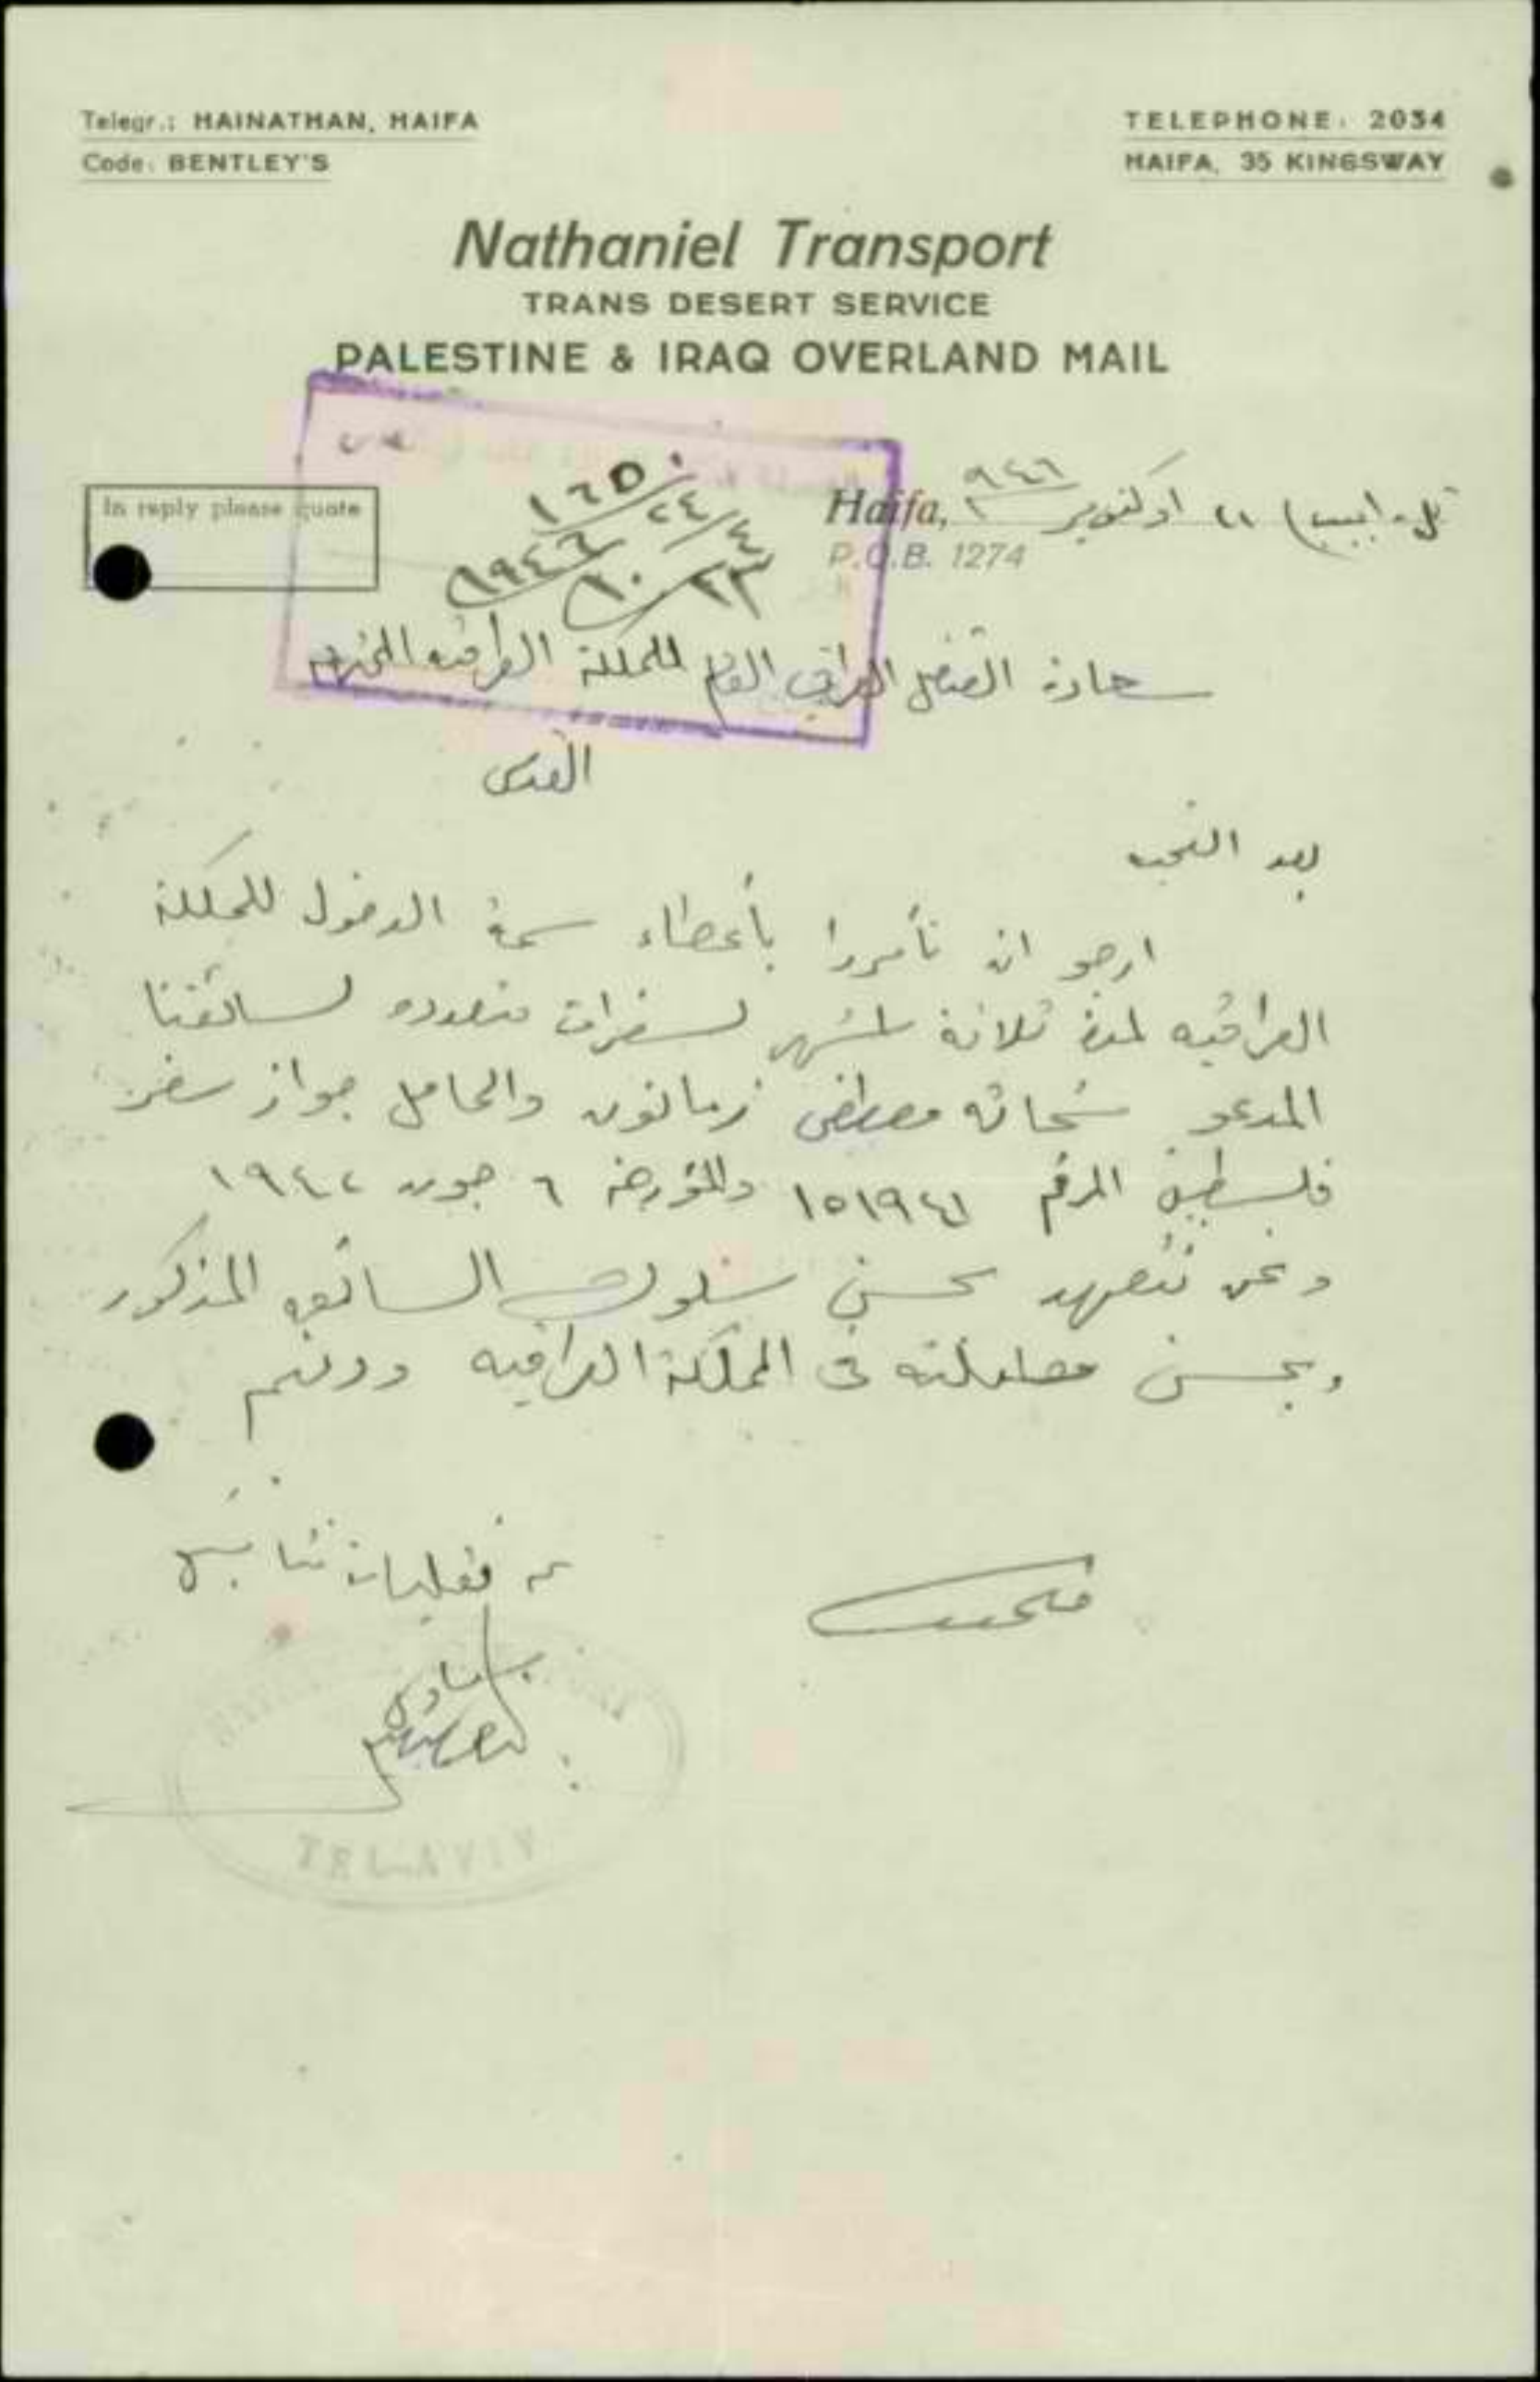 Telegr.: HAINATHAN, HAIFA
Code: BENTLEY'S
TELEPHONE: 2034
HAIFA, 35 KINGSWAY
Nathaniel Transport
TRANS DESERT SERVICE
PALESTINE & IRAQ OVERLAND MAIL
In reply please quote
Haifa, تل-ابيب) ٢١ اوكتوبر ٩٤٦
P.O.B. 1274
١٦٥٠
٢٤/٤
٢٣/١٠/١٩٤٦
سعادة القنصل العراقي العام للمملكة العراقيه المحترم
القدس
بعد التحيه
ارجو ان تأمروا بأعطاء سمة الدخول للمملكة
العراقيه لمدة ثلاثة اشهر لسفرات متعدده لسائقنا
المدعو شحاته مصطفى والحامل جواز سفر
فلسطيني المرقم ١٥١٩٤١ والمؤرخة ٦ جون ١٩٤٢
ونحن نتعهد بحسن سلوك السائق المذكور
وبحسن معاملته في المملكة العراقيه ودمتم
عن نقليات
TEL-AVIV